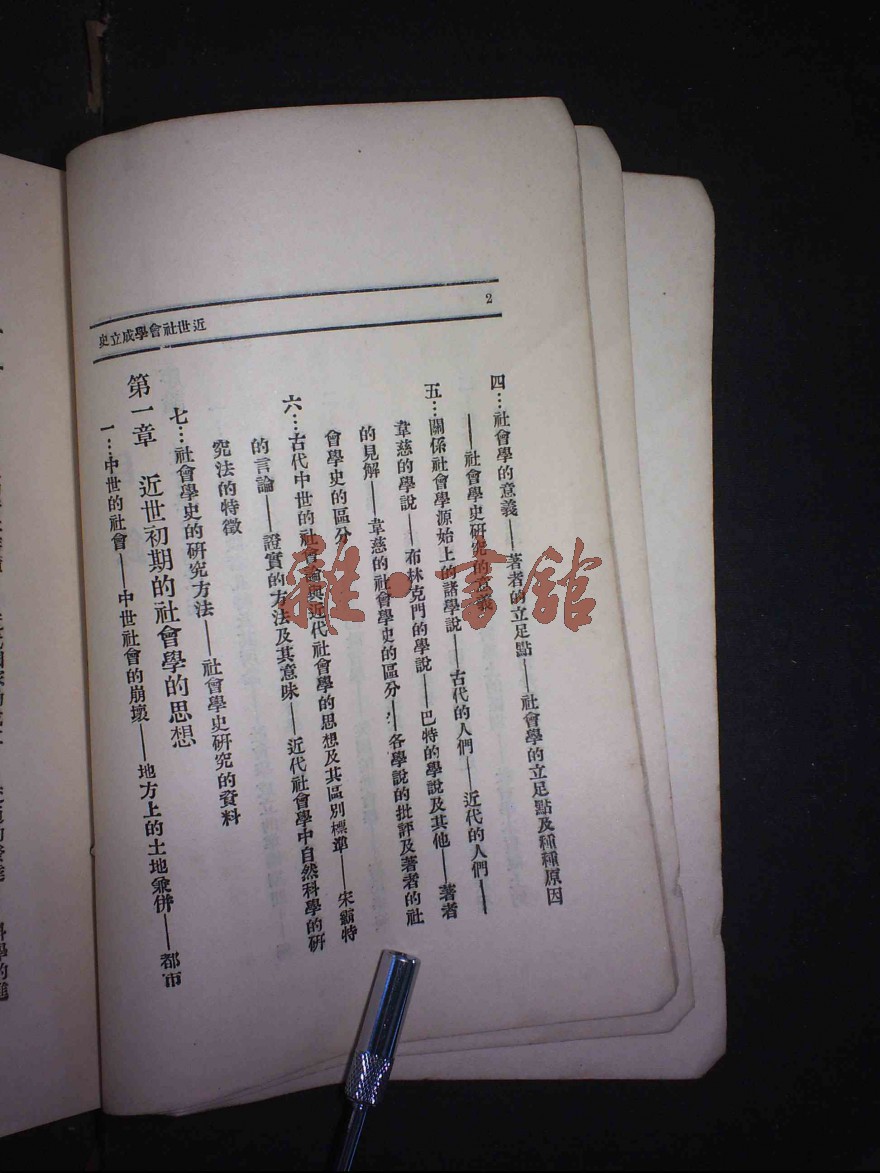 近世社會學成立史
2
四…社會學的意義——著者的立足點——社會學的立足點及種種原因
——社會學史研究的意義
五…關係社會學源始上的諸學說——古代的人們——近代的人們——
韋慈的學說——布林克門的學說——巴特的學說及其他——著者
的見解——韋慈的社會學史的區分——各學說的批評及著者的社
會學史的區分
六…古代中世的社會論與近代社會學的思想及其區別標準——宋霸特
的言論——證實的方法及其意味——近代社會學中自然科學的研
究法的特徵
七…社會學史的研究方法——社會學史研究的資料
第一章 近世初期的社會學的思想
一…中世的社會——中世社會的崩壞——地方上的土地兼併——都市
雜·書館